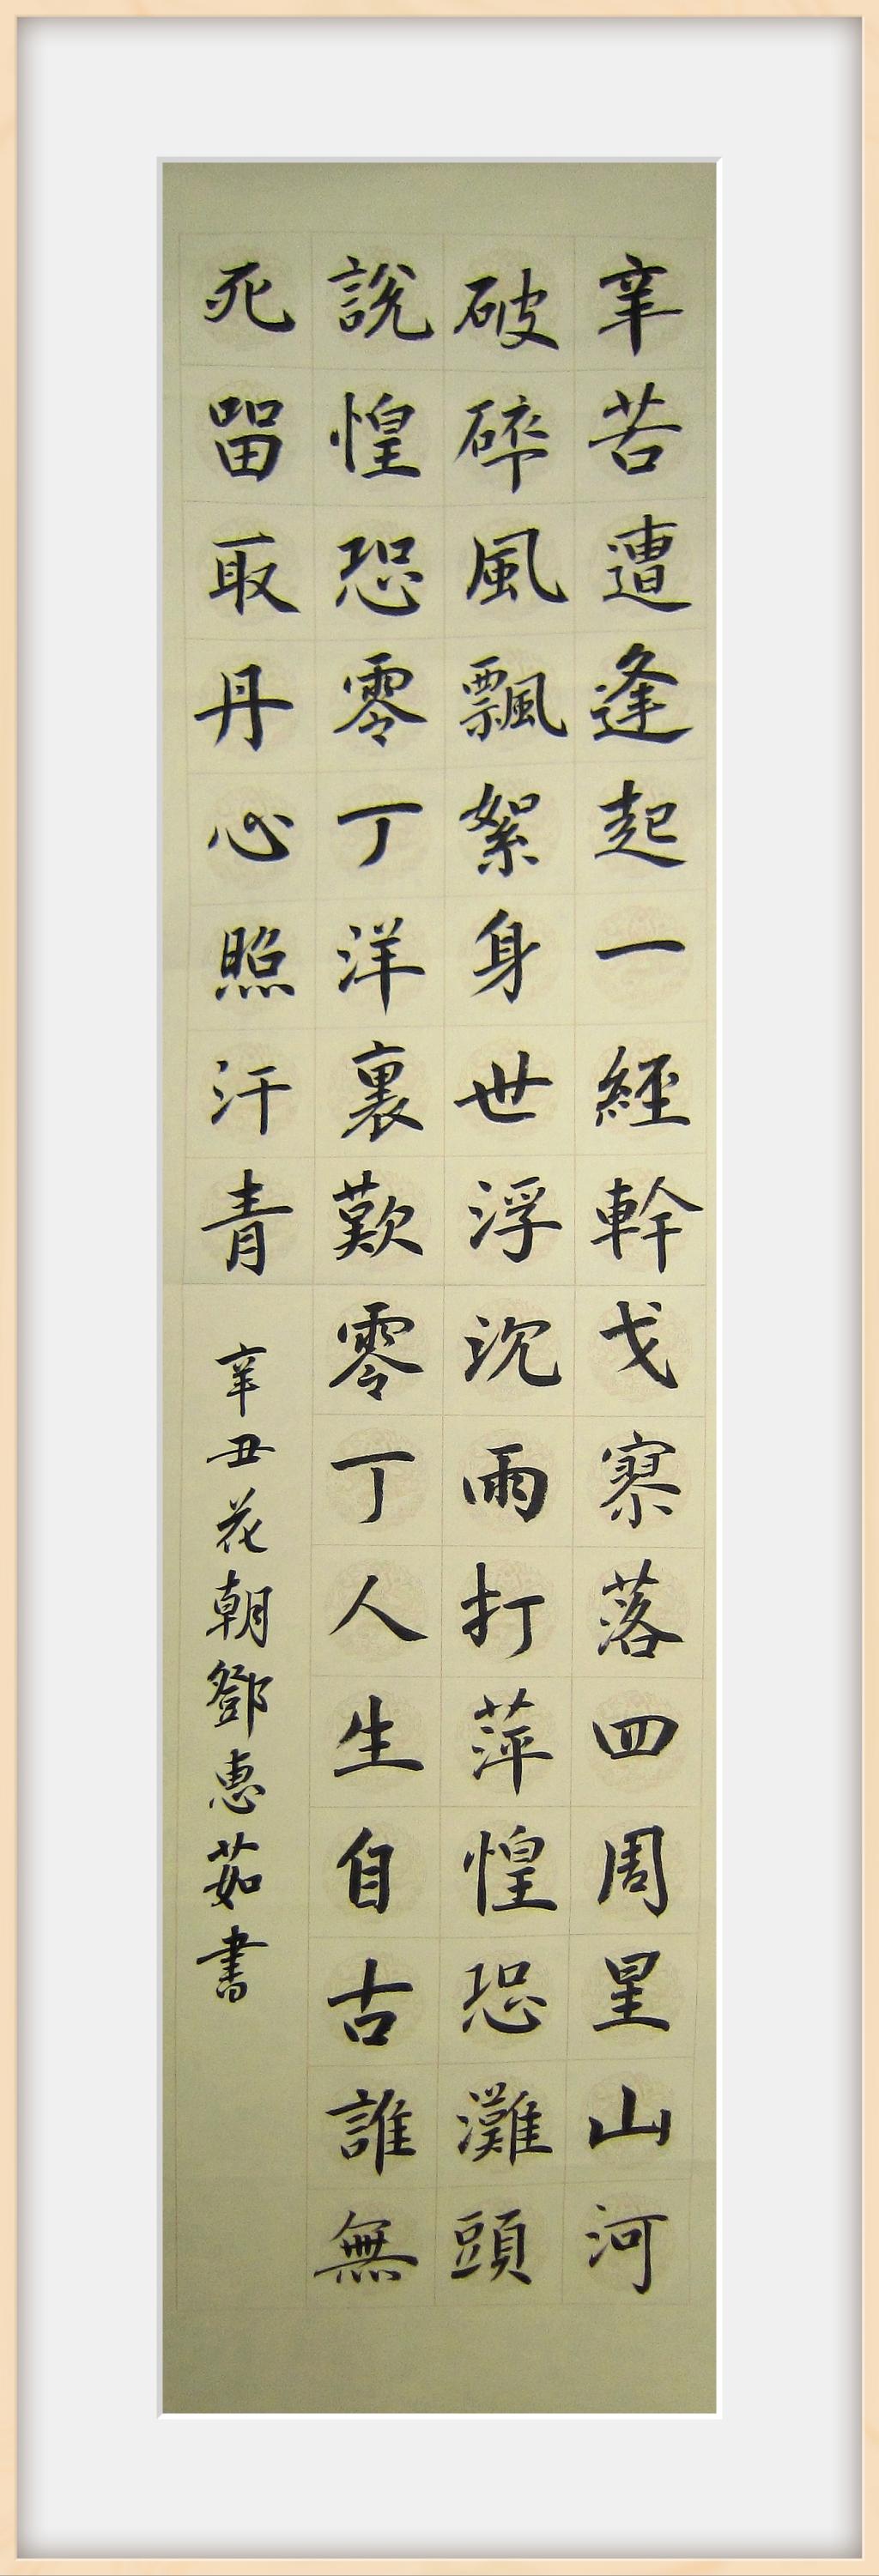 辛苦遭逢起一經幹戈寮落四周星山河
破碎風飄絮身世浮沉雨打萍惶恐灘頭
說惶恐零丁洋裏歎零丁人生自古誰無
死留取丹心照汗青
辛丑花朝鄧惠茹書